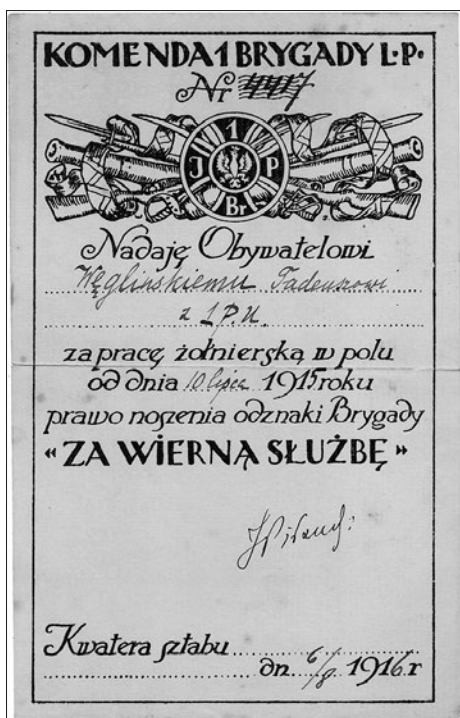 KOMENDA 1 BRYGADY L·P·
Nr 4417
1
J P
Br
Nadaję Obywatelowi
Węglińskiemu Tadeuszowi
z 1 P.U.
za pracę żołnierską w polu
od dnia 10 lipca 1915 roku
prawo noszenia odznaki Brygady
« ZA WIERNĄ SŁUŻBĘ »
Kwatera sztabu
dn. 6/8. 1916.r